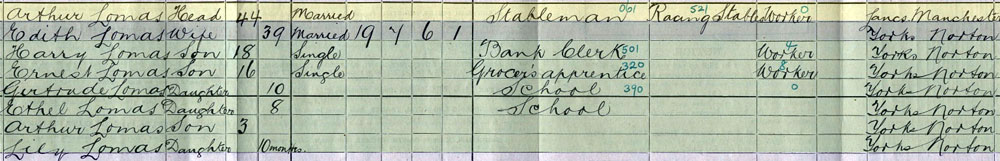 Arthur Lomas Head 44 Married Stableman 061 Racing 521 Stables Worker 0 Lancs Manchester
Edith Lomas Wife 39 Married 19 7 6 1 Yorks Norton
Harry Lomas Son 18 Single Bank Clerk 501 Worker 4 Yorks Norton
Ernest Lomas Son 16 Single Grocers apprentice 320 Worker 8 Yorks Norton
Gertrude Lomas Daughter 10 School 390 0 Yorks Norton
Ethel Lomas Daughter 8 School Yorks Norton
Arthur Lomas Son 3 Yorks Norton
Lily Lomas Daughter 10 months. Yorks Norton